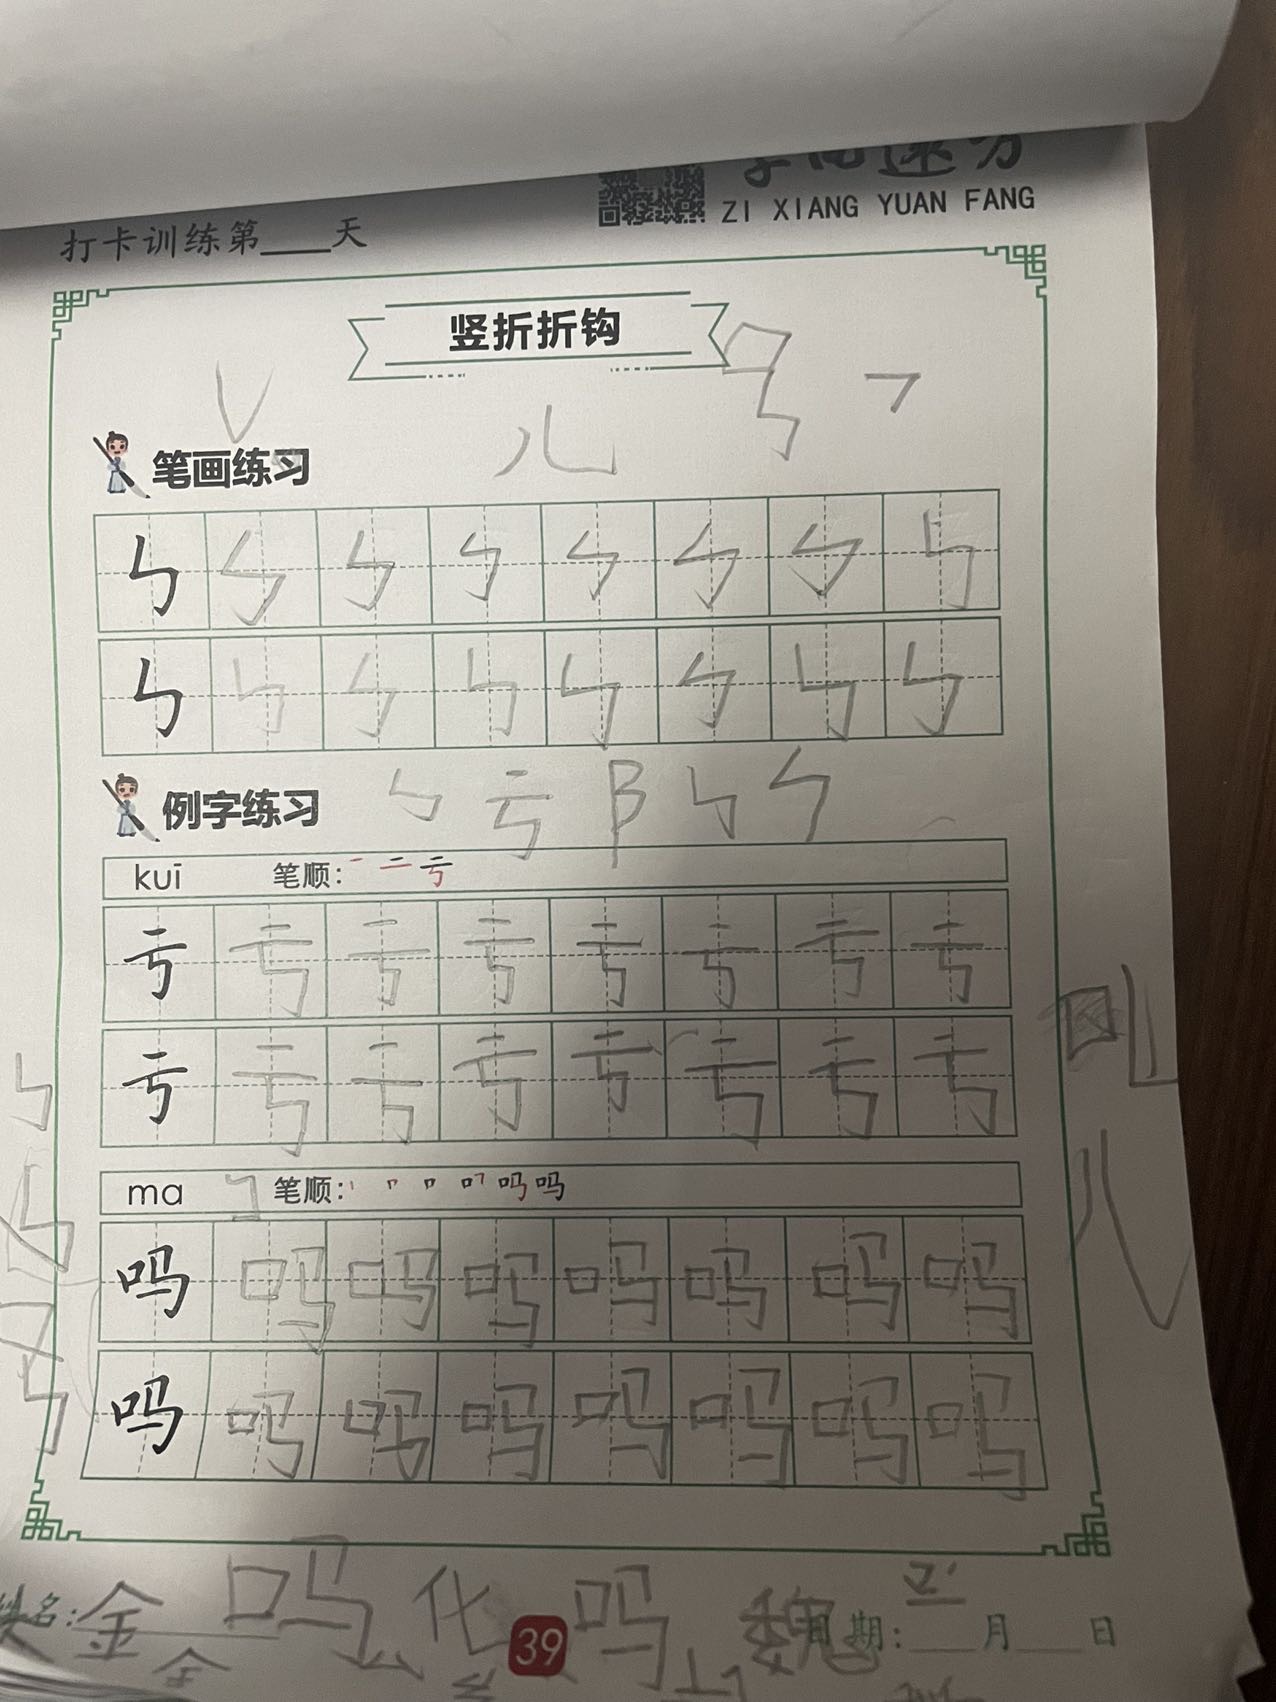 ZI XIANG YUAN FANG
打卡训练第____天
竖折折钩
笔画练习
㇉ ㇉ ㇉ ㇉ ㇉ ㇉ ㇉ ㇉
㇉ ㇉ ㇉ ㇉ ㇉ ㇉ ㇉ ㇉
例字练习
㇉ 亏 阝 ㇉ ㇉
kuī 笔顺: 一 二 亏
亏 亏 亏 亏 亏 亏 亏 亏
亏 亏 亏 亏 亏 亏 亏 亏
ma 笔顺: 丨 口 吗 吗
吗 吗 吗 吗 吗 吗 吗 吗
吗 吗 吗 吗 吗 吗 吗 吗
金 吗 化 吗 魏
姓名: 39 日期:____月____日